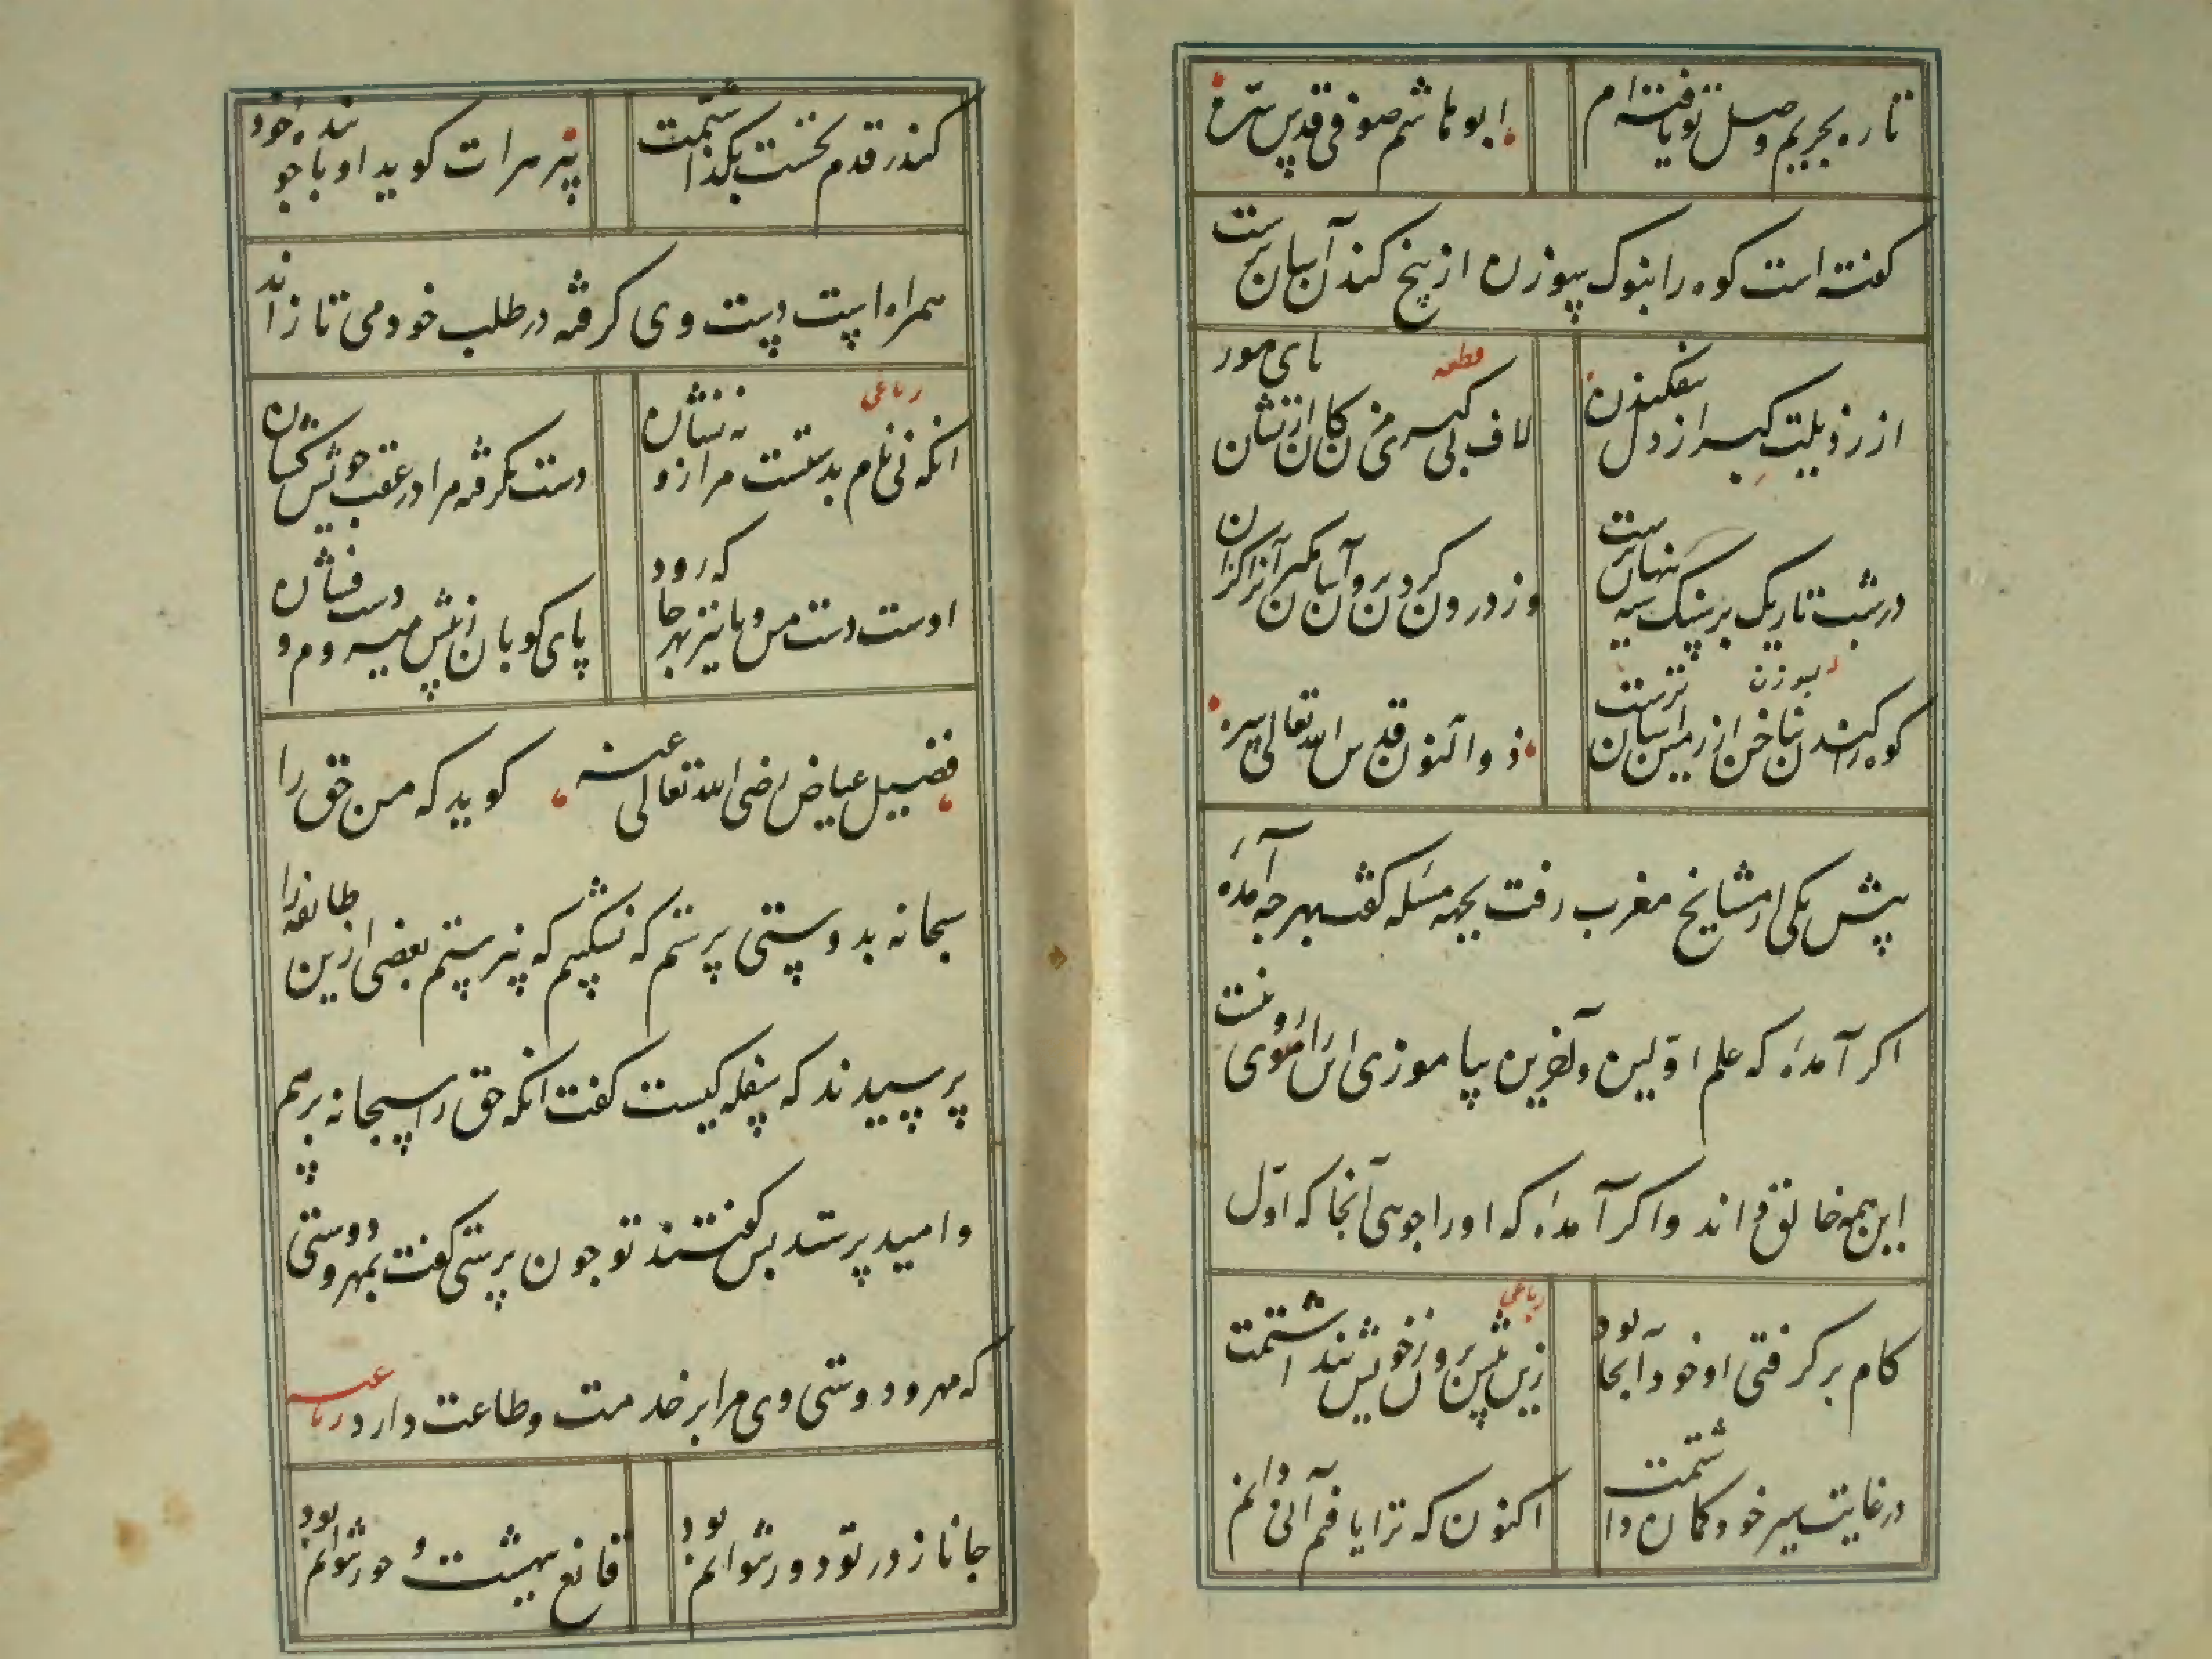 تا ره بحریم وصل تو یافته ام
ابو هاشم صوفی قدس سره
کفته است کوه را بنوک سوزن از بیخ کندن آسان ترست
از رذیلت کبر از دل بیفکندن
قطعه
لاف بی کبری مزن کان از نشان پای مور
در شب تاریک بر سنک سیه پنهان ترست
وز درون کردن برون آسان مکیر آنرا کزان
کوه را کندن بسوزن از زمین آسان ترست
ذو النون قدس الله تعالی سره
پیش یکی از مشایخ مغرب رفت بجهه مسئله کفت بهر چه آمدهٔ
اکر آمدهٔ که علم اولین و آخرین بیاموزی این را روی نیست
این همه خالق داند و اکر آمدهٔ که او را جوئی آنجا که اول
کام بر کرفتی او خود آنجا بود
رباعی
زین پیش برون ز خویش پنداشتمت
در غایت سیر خود کمان داشتمت
اکنون که ترا یافتم آنی دانم
کندر قدم نخست بکذاشتمت
پیر هرات کوید او با جوینده خود
همراه است دست وی کرفته در طلب خود می تازاند
رباعی
انکه نی نام بدستست مرا زو نه نشان
دست بکرفته مرا در عقب خویش کشان
اوست دست من و پا نیز بهر جا که رود
پای کوبان ز پیش میروم و دست فشان
فضیل عیاض رضی الله تعالی عنه کوید که من حق را
سبحانه بدوستی پرستم که نشکیبم که نپرستم بعضی ازین طایفه را
پرسیدند که سفله کیست کفت انکه حق را سبحانه بر بیم
و امید پرستد پس کفتند تو چون پرستی کفت بمهر و دوستی
که مهر و دوستی وی مرا بر خدمت و طاعت دارد رباعیه
جانا ز در تو دور نتوانم بود
قانع ببهشت و حور نتوانم بود